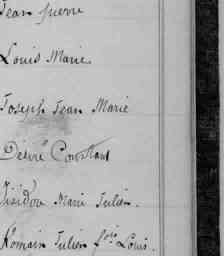 Jean pierre
Louis Marie
Joseph Jean Marie
Désiré Constant
Isidore Marie Julien.
Romain Julien f.ois Louis.